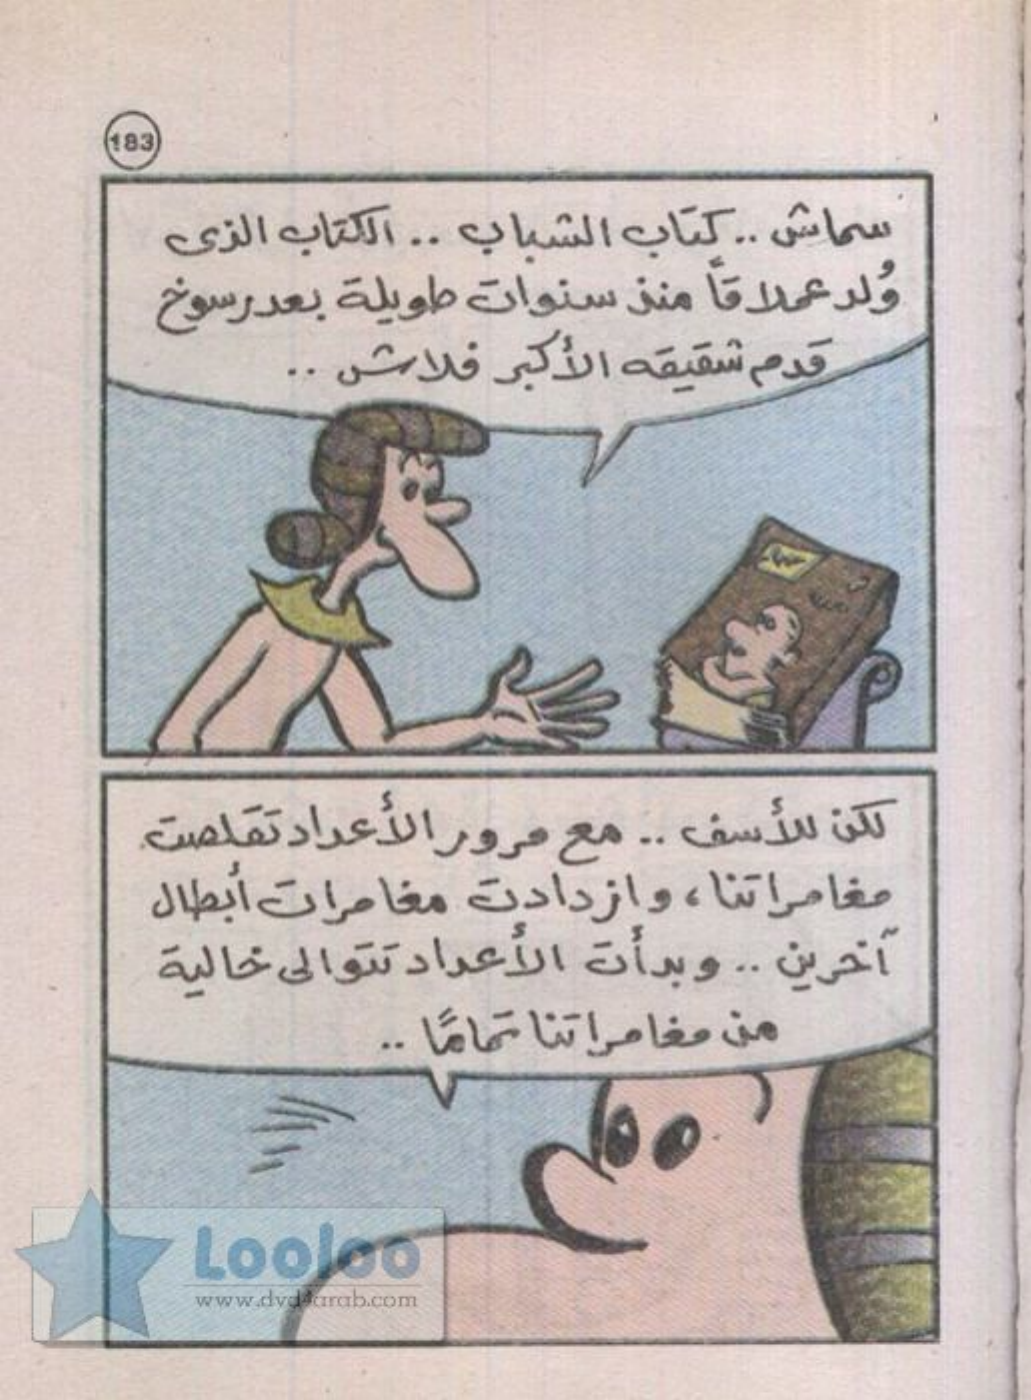 183
سماش .. كتاب الشباب .. الكتاب الذى
وُلد عملاقاً منذ سنوات طويلة بعد رسوخ
قدم شقيقه الأكبر فلاش ..
لكن للأسف .. مع مرور الأعداد تقلصت
مغامراتنا ، وازدادت مغامرات أبطال
آخرين .. وبدأت الأعداد تتوالى خالية
من مغامراتنا تمامًا ..
Looloo
www.dvd4arab.com